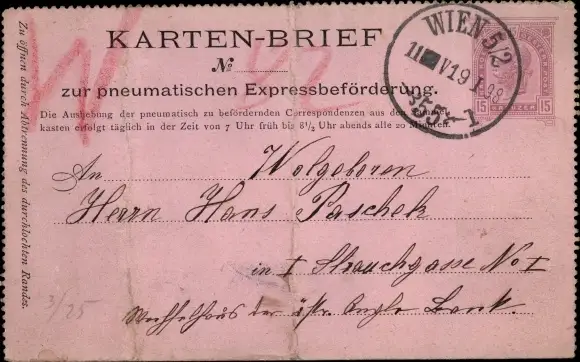 KARTEN-BRIEF
№
zur pneumatischen Expressbeförderung.
Die Aushebung der pneumatisch zu befördernden Correspondenzen aus den Sammel-
kasten erfolgt täglich in der Zeit von 7 Uhr früh bis 8½ Uhr abends alle 20 Minuten.
Zu öffnen durch Abtrennung des durchlochten Randes.
WIEN 5/2
15 15
An Wolgeboren
Herrn Hans Paschek
in I Strauchgasse No I
Wechselhaus der Anglo Bank.
3/25